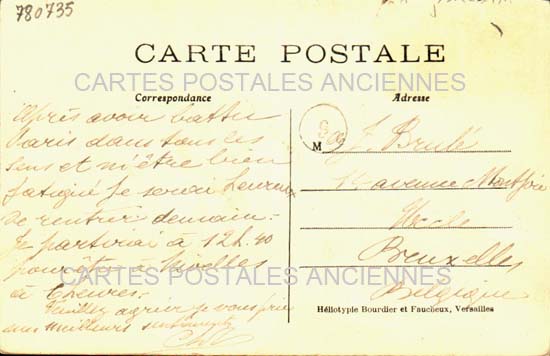 780735
CARTE POSTALE
CARTES POSTALES ANCIENNES
Correspondance
Adresse
Après avoir battu
Paris dans tous les
sens et m'être bien
fatigué je serai heureux
de rentrer demain.
Je partirai à 12h.40
pour être à Nivelles
à 6 heures.
Veuillez agréer je vous prie
mes meilleurs sentiments
M J. Brulé
avenue
Uccle
Bruxelles
Belgique
CARTES POSTALES ANCIENNES
Héliotypie Bourdier et Faucheux, Versailles